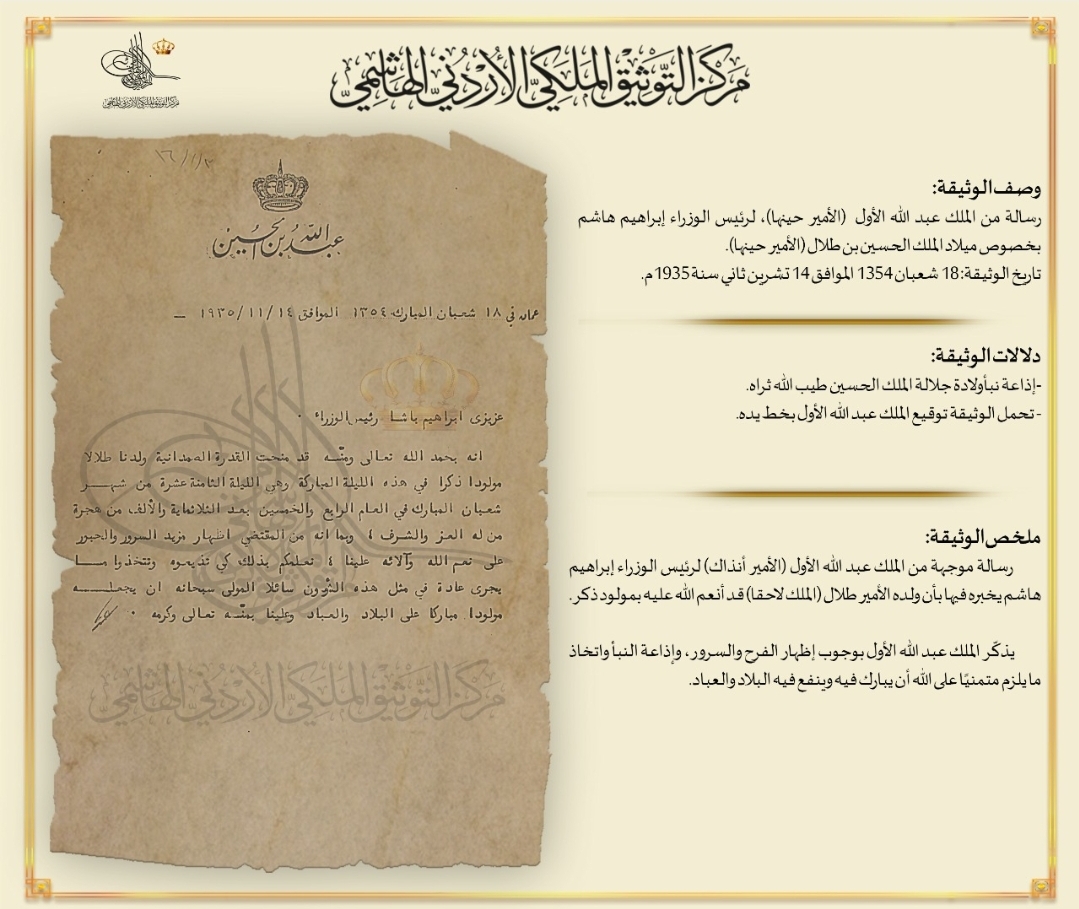 مركز التوثيق الملكي الأردني الهاشمي
مركز التوثيق الملكي الأردني الهاشمي
وصف الوثيقة:
رسالة من الملك عبد الله الأول (الأمير حينها)، لرئيس الوزراء إبراهيم هاشم
بخصوص ميلاد الملك الحسين بن طلال (الأمير حينها).
تاريخ الوثيقة: 18 شعبان 1354 الموافق 14 تشرين ثاني سنة 1935 م.
دلالات الوثيقة:
-إذاعة نبأ ولادة جلالة الملك الحسين طيب الله ثراه.
- تحمل الوثيقة توقيع الملك عبد الله الأول بخط يده.
ملخص الوثيقة:
رسالة موجهة من الملك عبد الله الأول (الأمير أنذاك) لرئيس الوزراء إبراهيم
هاشم يخبره فيها بأن ولده الأمير طلال (الملك لاحقا) قد أنعم الله عليه بمولود ذكر.
يذكّر الملك عبد الله الأول بوجوب إظهار الفرح والسرور، وإذاعة النبأ واتخاذ
ما يلزم متمنيًا على الله أن يبارك فيه وينفع فيه البلاد والعباد.
عبد الله بن الحسين
عمان في ١٨ شعبان المبارك ١٣٥٤ الموافق ١٩٣٥/١١/١٤ —
عزيزى ابراهيم باشا رئيس الوزراء ٠
انه بحمد الله تعالى ومنّه قد منحت القدرة الصمدانية ولدنا طلالا
مولودا ذكرا في هذه الليلة المباركة وهي الليلة الثامنة عشرة من شهر
شعبان المبارك في العام الرابع والخمسين بعد الثلاثماية والألف من هجرة
من له العز والشرف ، وبما انه من المقتضي اظهار مزيد السرور والحبور
على نعم الله وآلائه علينا ، نعلمكم بذلك كي تذيعوه وتتخذوا ما
يجرى عادة في مثل هذه الشؤون سائلا المولى سبحانه ان يجعله
مولودا مباركا على البلاد والعباد وعلينا بمنّه تعالى وكرمه ٠
مركز التوثيق الملكي الأردني الهاشمي